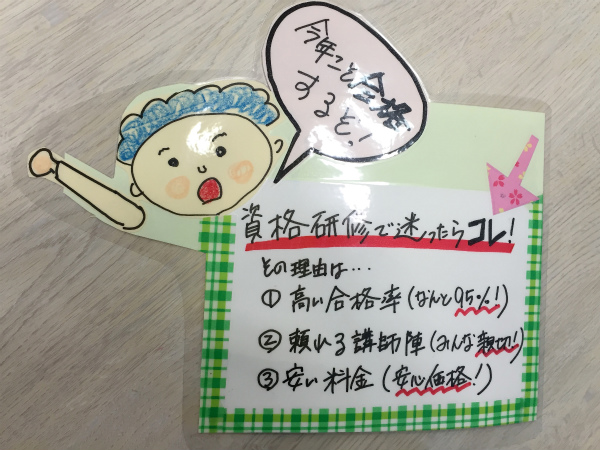 今年こそ合格
するぞ!
資格研修で迷ったらコレ!
その理由は…
①高い合格率(なんと95%!)
②頼れる講師陣(みんな親切!)
③安い料金(安心価格!)